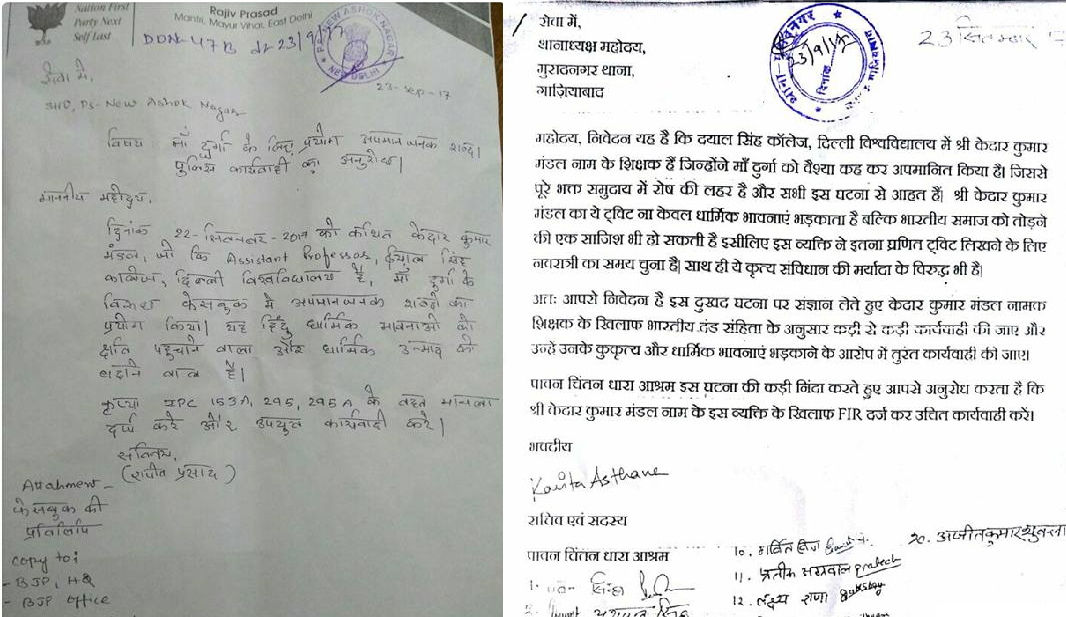 Nation First
Party Next
Self Last
Rajiv Prasad
Mantri, Mayur Vihar, East Delhi
DDN-47B dt 23/9/17
PS NEW ASHOK NAGAR
NEW DELHI
23-Sep-17
सेवा में,
SHO, PS-New Ashok Nagar
विषय माँ दुर्गा के लिए प्रयोग अपमानजनक शब्द।
पुलिस कार्यवाही का अनुरोध।
माननीय महोदय,
दिनांक 22-सितम्बर-2017 को कथित केदार कुमार
मंडल, जो कि Assistant Professor, दयाल सिंह
कालेज, दिल्ली विश्वविद्यालय है, माँ दुर्गा के
विरुद्ध फेसबुक में अपमानजनक शब्दों का
प्रयोग किया। यह हिंदू धार्मिक भावनाओं को
क्षति पहुचाने वाला और धार्मिक उन्माद को
बढ़ाने वाला है।
कृप्या IPC 153A, 295, 295A के तहत मामला
दर्ज करे और उपयुक्त कार्यवाही करे।
सविनय,
(राजीव प्रसाद)
Attachment -
फेसबुक की
प्रतिलिपि
Copy to:
- BJP, HQ
- BJP office
सेवा में,
थानाध्यक्ष महोदय,
मुरादनगर थाना,
गाज़ियाबाद
23/9/17
दिनांक
23 सितम्बर
महोदय, निवेदन यह है कि दयाल सिंह कॉलेज, दिल्ली विश्वविद्यालय में श्री केदार कुमार
मंडल नाम के शिक्षक हैं जिन्होंने माँ दुर्गा को वैश्या कह कर अपमानित किया है। जिससे
पूरे भक्त समुदाय में रोष की लहर है और सभी इस घटना से आहत हैं। श्री केदार कुमार
मंडल का ये ट्विट ना केवल धार्मिक भावनाएं भड़काता है बल्कि भारतीय समाज को तोड़ने
की एक साजिश भी हो सकती है इसीलिए इस व्यक्ति ने इतना घ्रणित ट्विट लिखने के लिए
नवरात्री का समय चुना है। साथ ही ये कृत्य संविधान की मर्यादा के विरुद्ध भी है।
अतः आपसे निवेदन है इस दुखद घटना पर संज्ञान लेते हुए केदार कुमार मंडल नामक
शिक्षक के खिलाफ भारतीय दंड संहिता के अनुसार कड़ी से कड़ी कार्यवाही की जाए और
उन्हें उनके कुकृत्य और धार्मिक भावनाएं भड़काने के आरोप में तुरंत कार्यवाही की जाए।
पावन चिंतन धारा आश्रम इस घटना की कड़ी निंदा करते हुए आपसे अनुरोध करता है कि
श्री केदार कुमार मंडल नाम के इस व्यक्ति के खिलाफ FIR दर्ज कर उचित कार्यवाही करें।
भवदीय
Kavita Asthana
सचिव एवं सदस्य
पावन चिंतन धारा आश्रम
1.
2.
10.
11. प्रतीक अग्रवाल Prateek
12. लक्ष्य राणा
20. अजीत कुमार शुक्ला